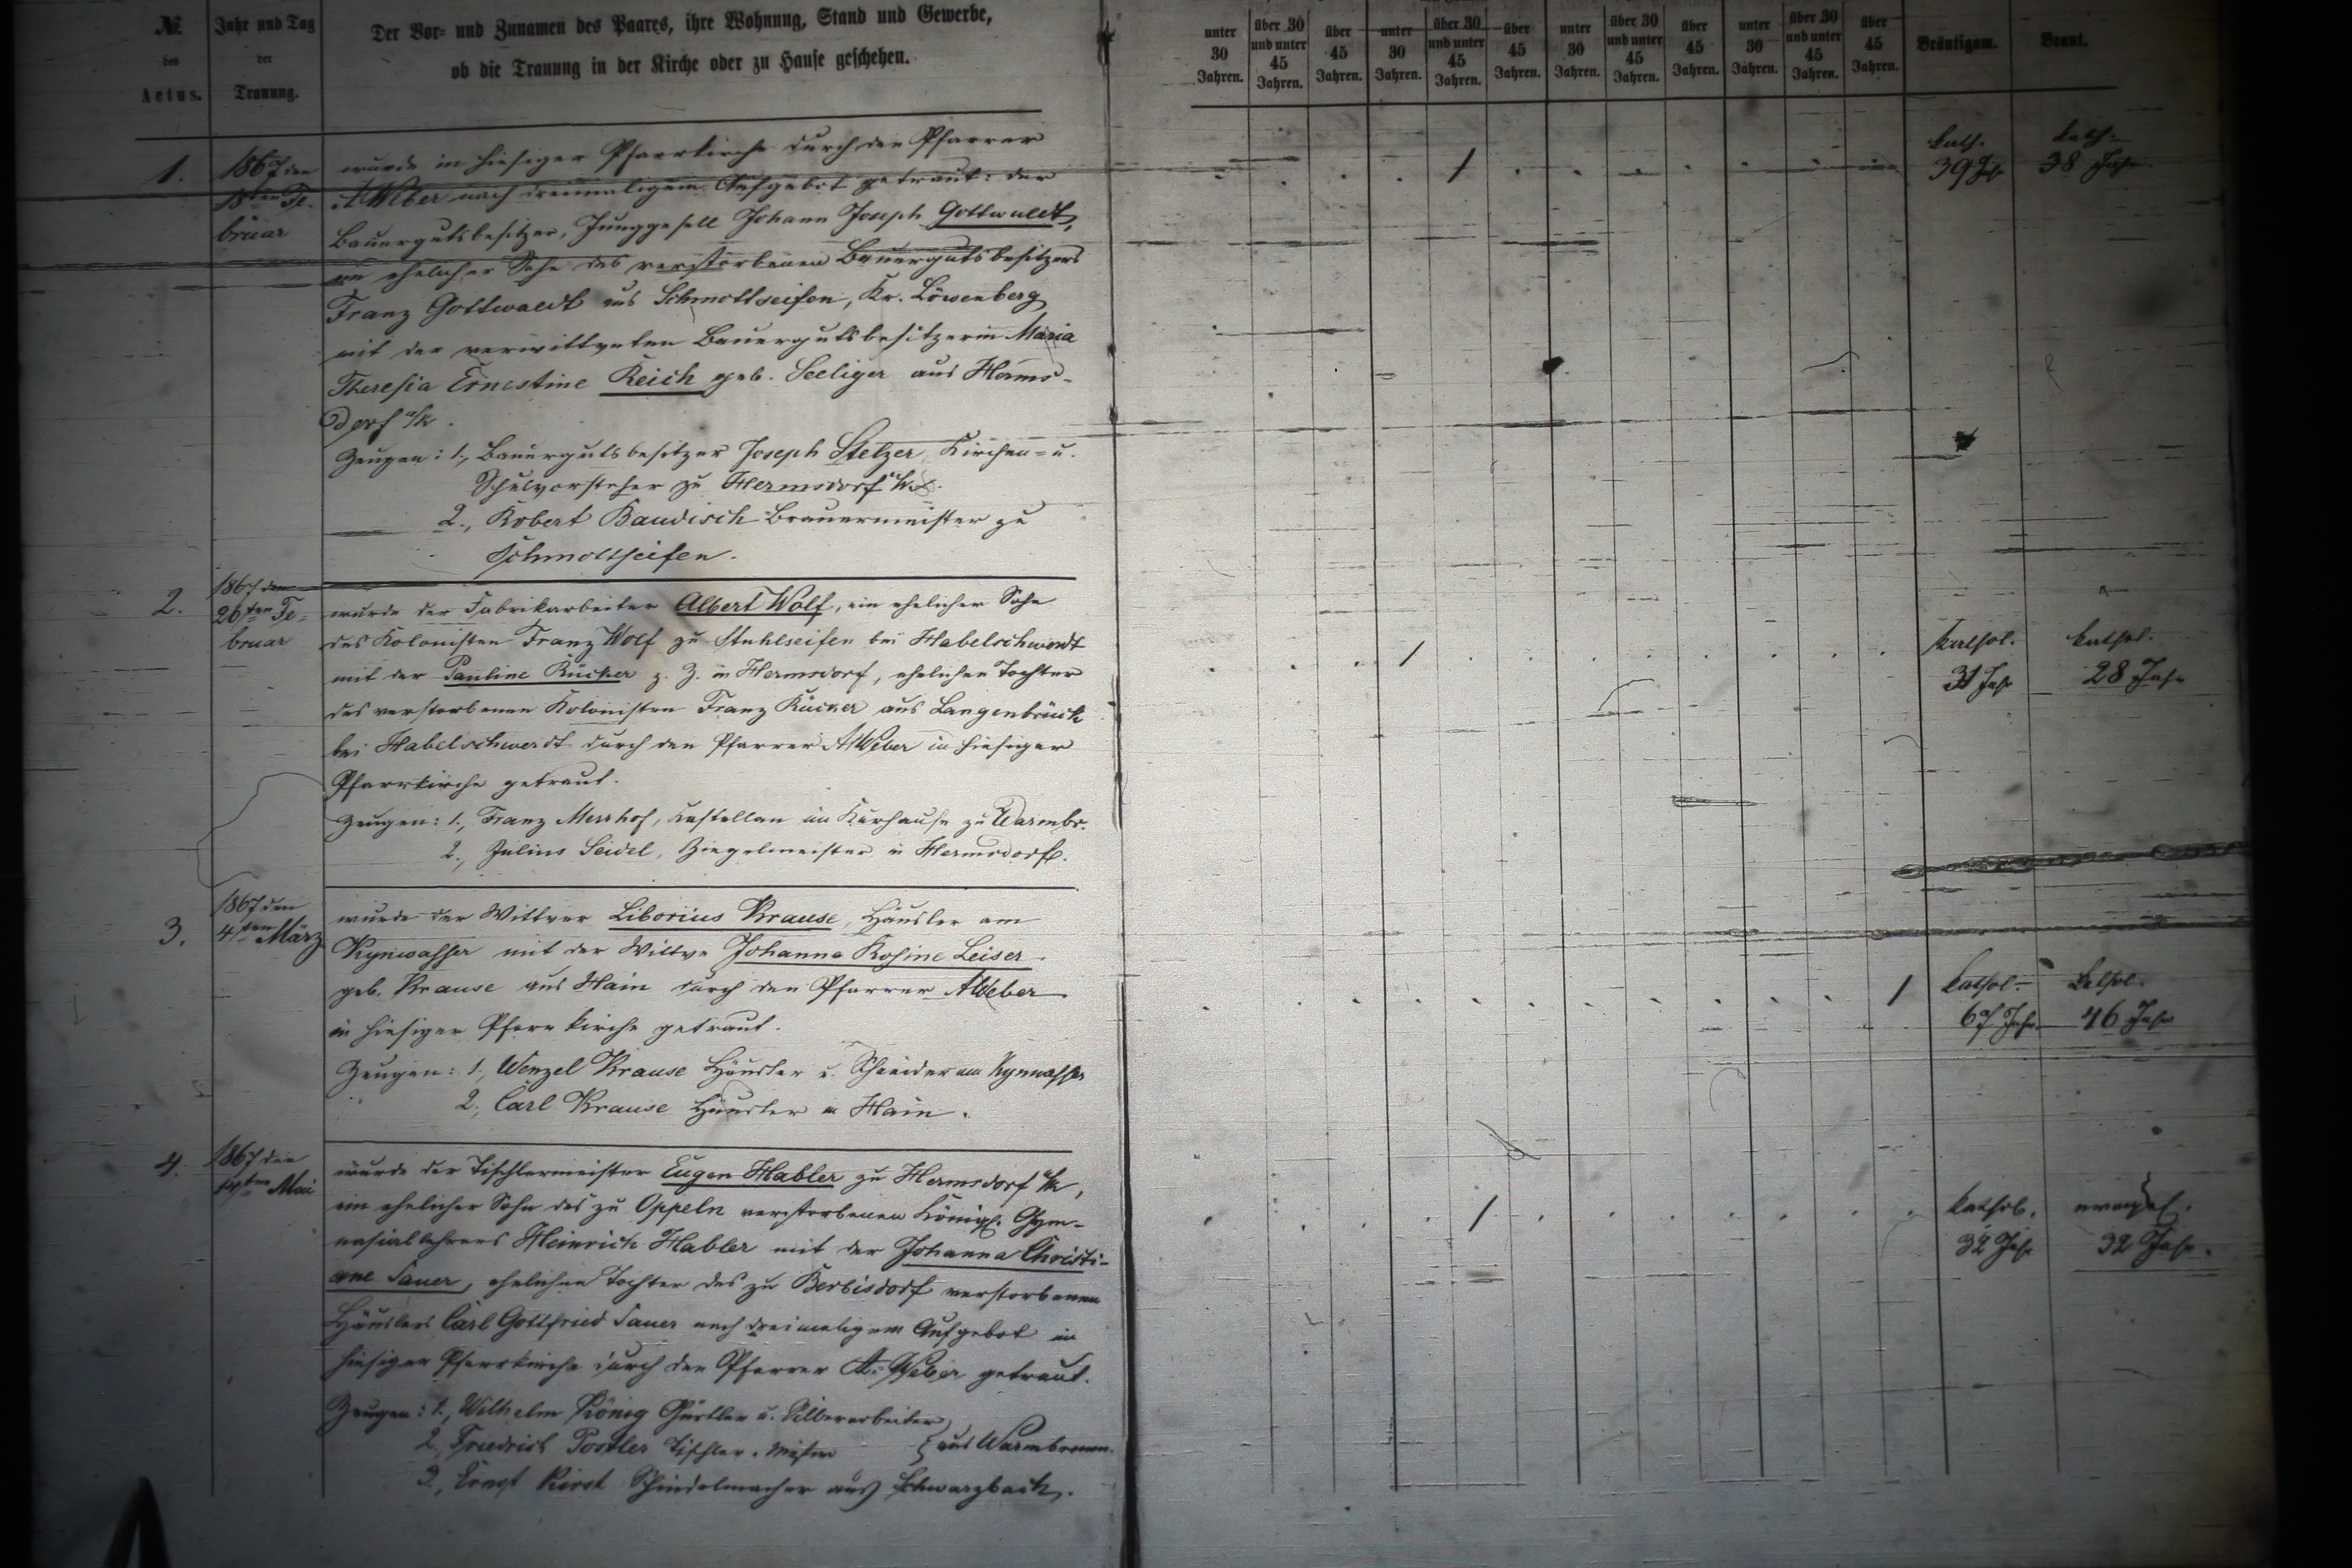 № des Actus.
Jahr und Tag der Trauung.
Der Vor- und Zunamen des Paares, ihre Wohnung, Stand und Gewerbe,
ob die Trauung in der Kirche oder zu Hause geschehen.
unter 30 Jahren. über 30 und unter 45 Jahren. über 45 Jahren. unter 30 Jahren. über 30 und unter 45 Jahren. über 45 Jahren. unter 30 Jahren. über 30 und unter 45 Jahren. über 45 Jahren. unter 30 Jahren. über 30 und unter 45 Jahren. über 45 Jahren. Bräutigam. Braut.
1.
1867 den
18ten Fe-
bruar
wurde in hiesiger Pfarrkirche durch den Pfarrer
A Weber nach dreimaligem Aufgebot getraut: der
Bauergutsbesitzer, Junggesell Johann Joseph Gottwaldt,
ein ehelicher Sohn des verstorbenen Bauergutsbesitzers
Franz Gottwaldt aus Schmottseifen, Kr. Löwenberg
mit der verwittweten Bauergutsbesitzerin Maria
Theresia Ernestine Reich geb. Seeliger aus Herms-
dorf u/k.
Zeugen: 1., Bauergutsbesitzer Joseph Stelzer, Kirchen- u.
Schulvorsteher zu Hermsdorf u/k.
2., Robert Baudisch Brauermeister zu
Schmottseifen.
kath.
39 Jahr
kath.
38 Jahr.
2.
1867 den
26ten Fe-
bruar
wurde der Fabrikarbeiter Albert Wolf, ein ehelicher Sohn
des Kolonisten Franz Wolf zu Stuhlseifen bei Habelschwerdt
mit der Pauline Rücker z. Z. in Hermsdorf, ehelichen Tochter
des verstorbenen Kolonisten Franz Rücker aus Langenbrück
bei Habelschwerdt durch den Pfarrer A Weber in hiesiger
Pfarrkirche getraut.
Zeugen: 1., Franz Kastellan im Kurhause zu Warmbr.
2., Julius Seidel, Ziegelmeister in Hermsdorf.
kathol.
31 Jahr
kathol.
28 Jahr
3.
1867 den
4ten März
wurde der Wittwer Liborius Krause, Häusler am
Kynwasser mit der Wittwe Johanna Rosine Leiser
geb. Krause aus Hain durch den Pfarrer A Weber
in hiesiger Pfarrkirche getraut.
Zeugen: 1., Wenzel Krause Häusler u. Schneider am Kynwasser
2., Carl Krause Häusler in Hain.
kathol.
67 Jahr
kathol.
46 Jahr
4.
1867 den
14ten Mai
wurde der Tischlermeister Eugen Habler zu Hermsdorf u/k,
ein ehelicher Sohn des zu Oppeln verstorbenen Königl. Gym-
nasiallehrers Heinrich Habler mit der Johanna Christi-
ane Sauer, ehelichen Tochter des zu Berbisdorf verstorbenen
Häuslers Carl Gottfried Sauer nach dreimaligem Aufgebot in
hiesiger Pfarrkirche durch den Pfarrer A. Weber getraut.
Zeugen: 1., Wilhelm König Gürtler u. Silberarbeiter
2., Friedrich Postler Tischler-Meister } aus Warmbrunn.
3., Ernst Kirst Schindelmacher aus Schwarzbach.
kathol.
32 Jahr
evangel.
32 Jahr.